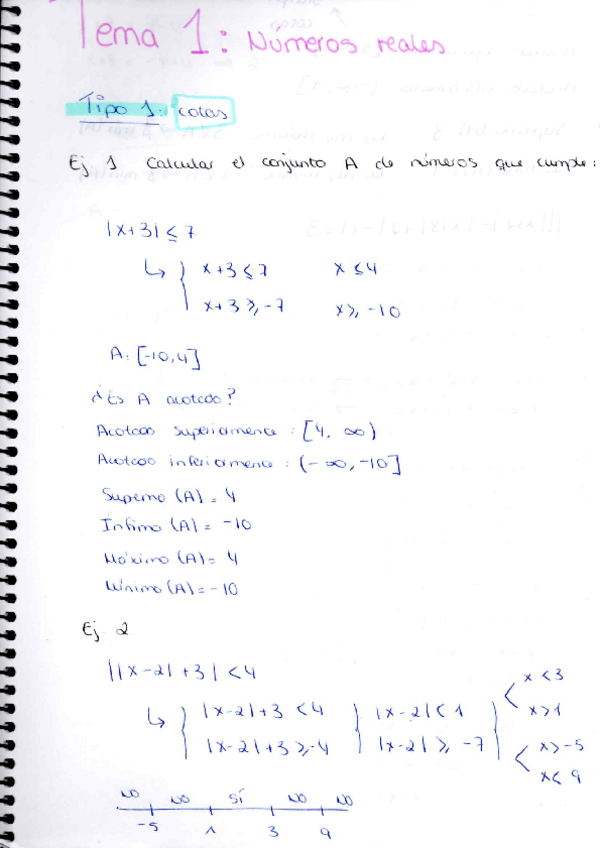 Tema 1: Números reales
Tipo 1: cotas
Ej. 1 Calcular el conjunto A de números que cumple:
|x+3| ≤ 7
↳ { x+3 ≤ 7 x ≤ 4
x+3 ≥ -7 x ≥ -10
A: [-10,4]
¿Es A acotado?
Acotado superiormente : [4, ∞)
Acotado inferiormente : (-∞, -10]
Supremo (A) = 4
Ínfimo (A) = -10
Máximo (A) = 4
Mínimo (A) = -10
Ej. 2
||x-2| +3| < 4
↳ { |x-2|+3 < 4 } |x-2| < 1 } < x < 3
x > 1
|x-2|+3 ≥ -4 |x-2| ≥ -7 < x > -5
x < 9
NO NO SÍ NO NO
-5 1 3 9